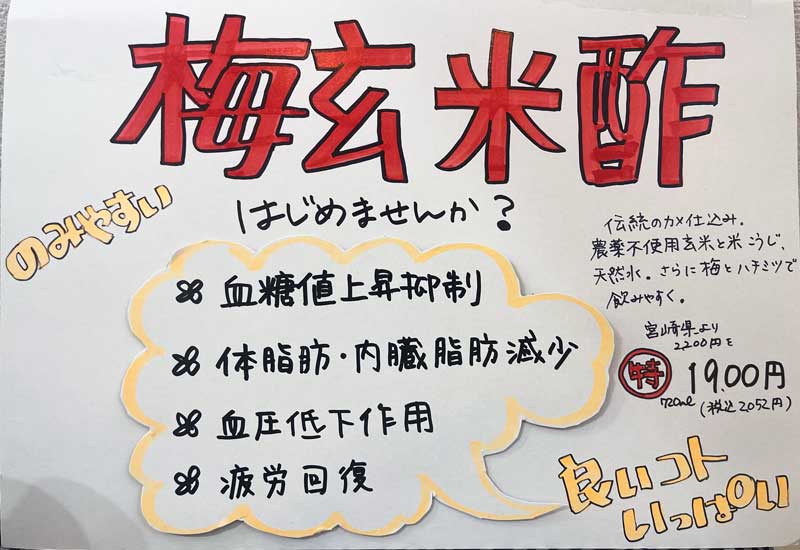 梅玄米酢
はじめませんか?
のみやすい
血糖値上昇抑制
体脂肪・内臓脂肪減少
血圧低下作用
疲労回復
伝統のカメ仕込み。
農薬不使用玄米と米こうじ、
天然水。さらに梅とハチミツで
飲みやすく。
宮崎県より
2,200円を
特 19.00円
720ml (税込2052円)
良いコト
いっぱい